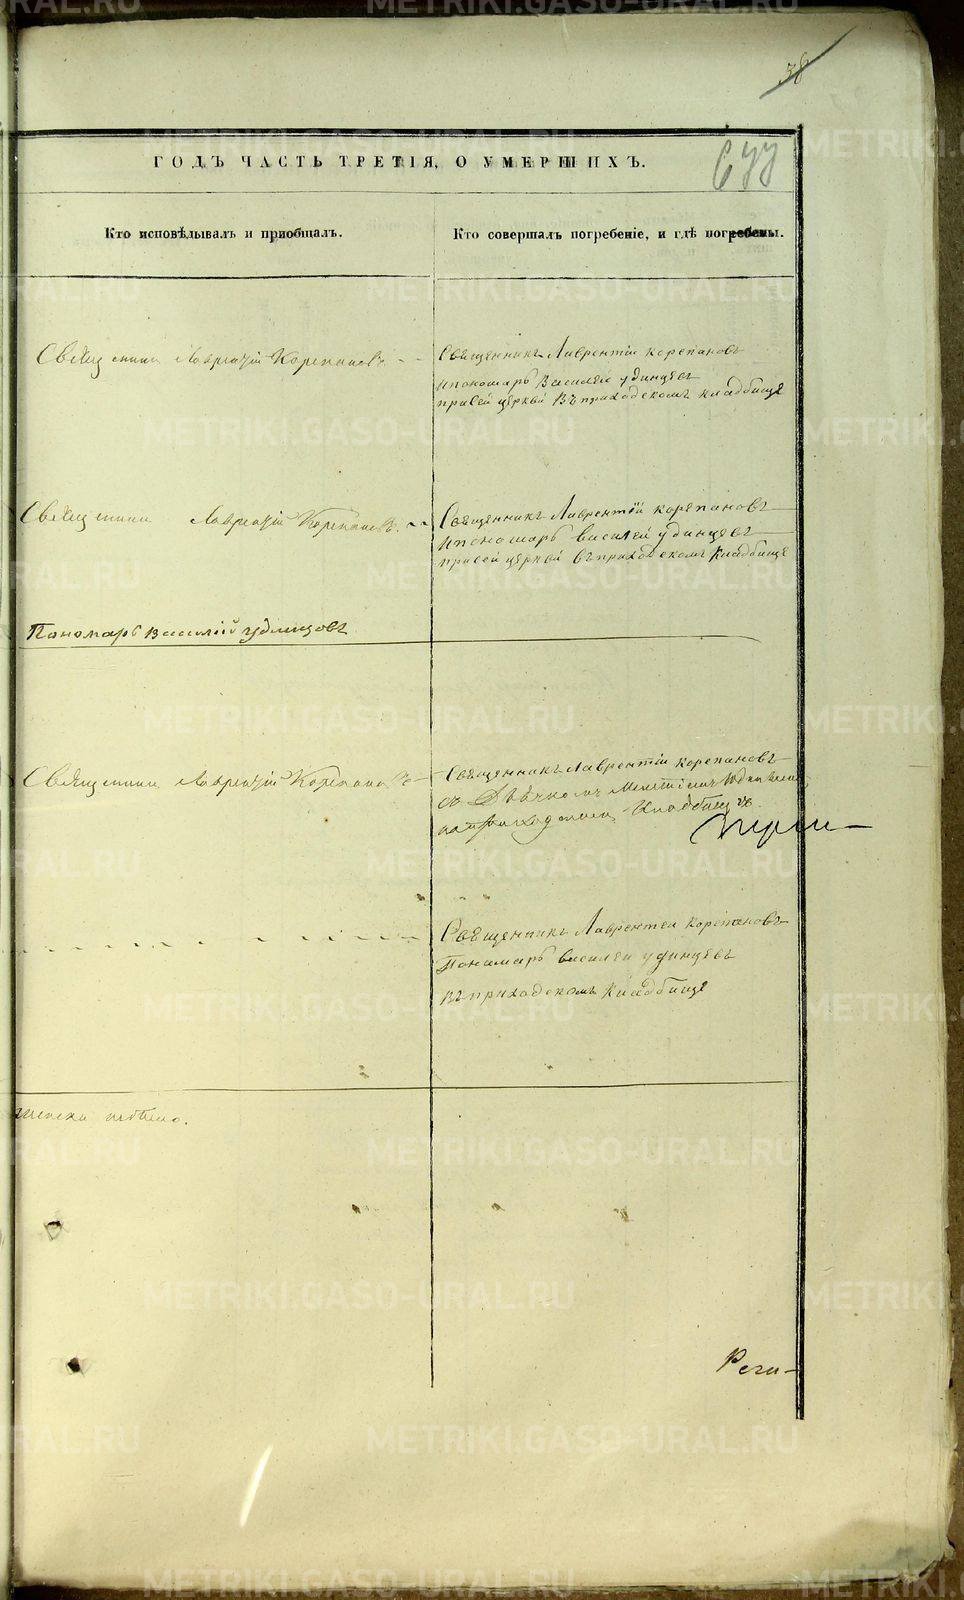 38
ГОДЪ ЧАСТЬ ТРЕТІЯ, О УМЕРШИХЪ.
677
Кто исповѣдывалъ и приобщалъ.
Кто совершалъ погребеніе, и гдѣ погребены.
Священникъ Лаврентій Корепановъ
Священникъ Лаврентій Корепановъ
и пономарь Василей удинцевъ
при сей церкви въ приходскомъ кладбище
Священникъ Лаврентій Корепановъ
Священникъ Лаврентій корепановъ
и пономарь василей удинцевъ
при сей церкви въ приходскомъ кладбище
Пономарь Василій удинцовъ
Священникъ Лаврентій Корепановъ
Священникъ Лаврентій корепановъ
съ Дьячкомъ
на приходскомъ Кладбищѣ
Священникъ Лаврентей корепановъ
Пономарь василеи удинцевъ
въ приходскомъ кладбище
METRIKI.GASO-URAL.RU